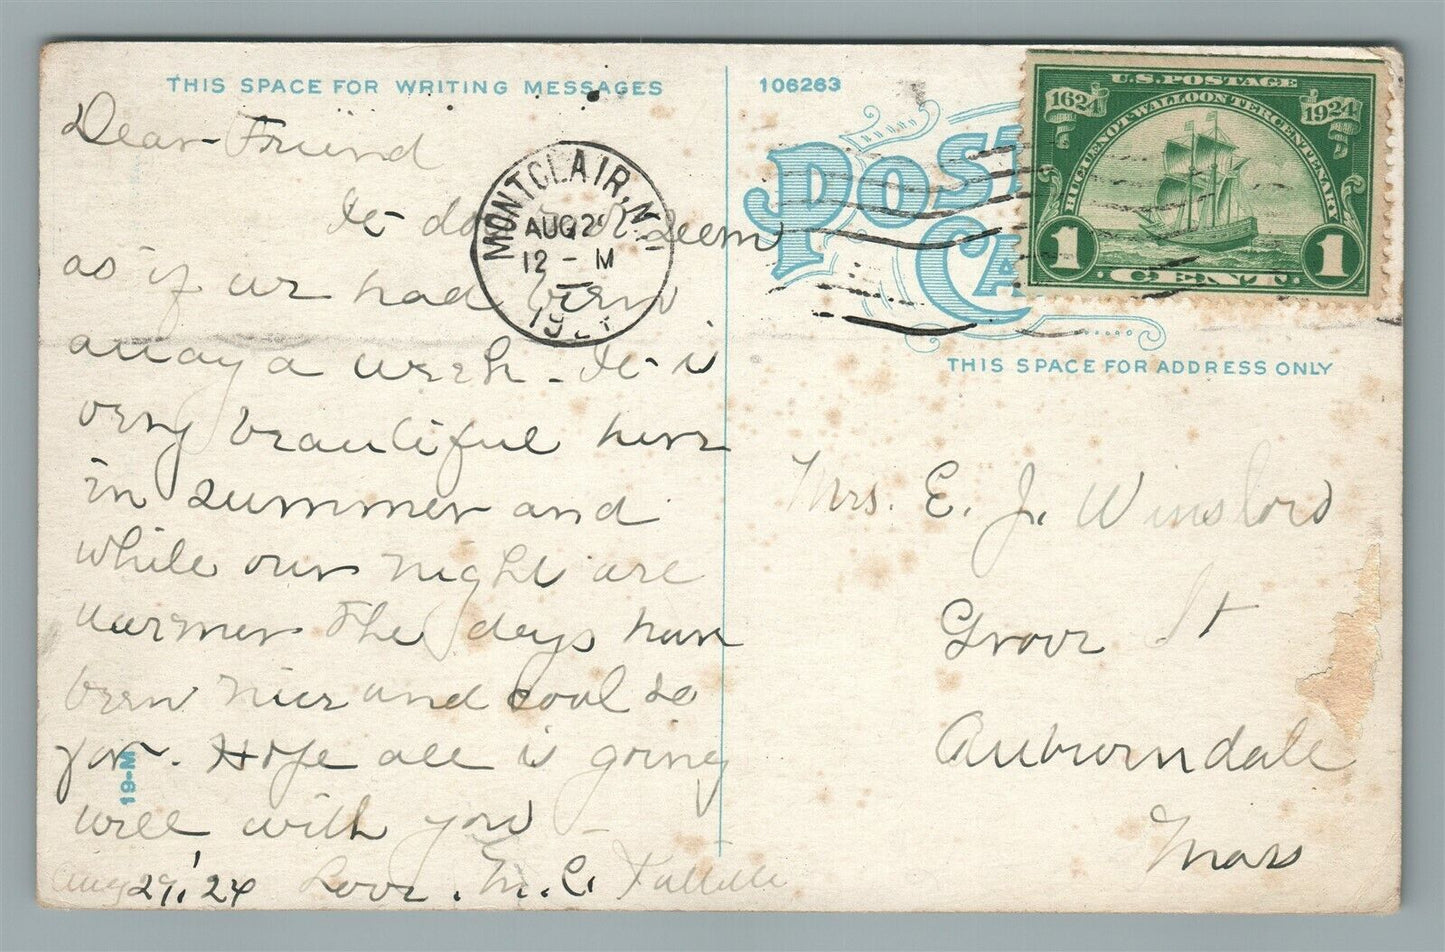 THIS SPACE FOR WRITING MESSAGES
106263
POST
CA
U.S. POSTAGE
1624
1924
HUGUENOT WALLOON TERCENTENARY
1
CENT
1
THIS SPACE FOR ADDRESS ONLY
MONTCLAIR, N.
AUG 29
12 - M
192
Dear Friend
It seem
as if we had been
away a week. It is
very beautiful here
in summer and
while our night are
warmer the days have
been nice and cool so
far. Hope all is going
well with you
Aug 29, '24 Love. M. C.
19-M
Mrs. E. J. Winslow
Grove St
Auburndale
Mass